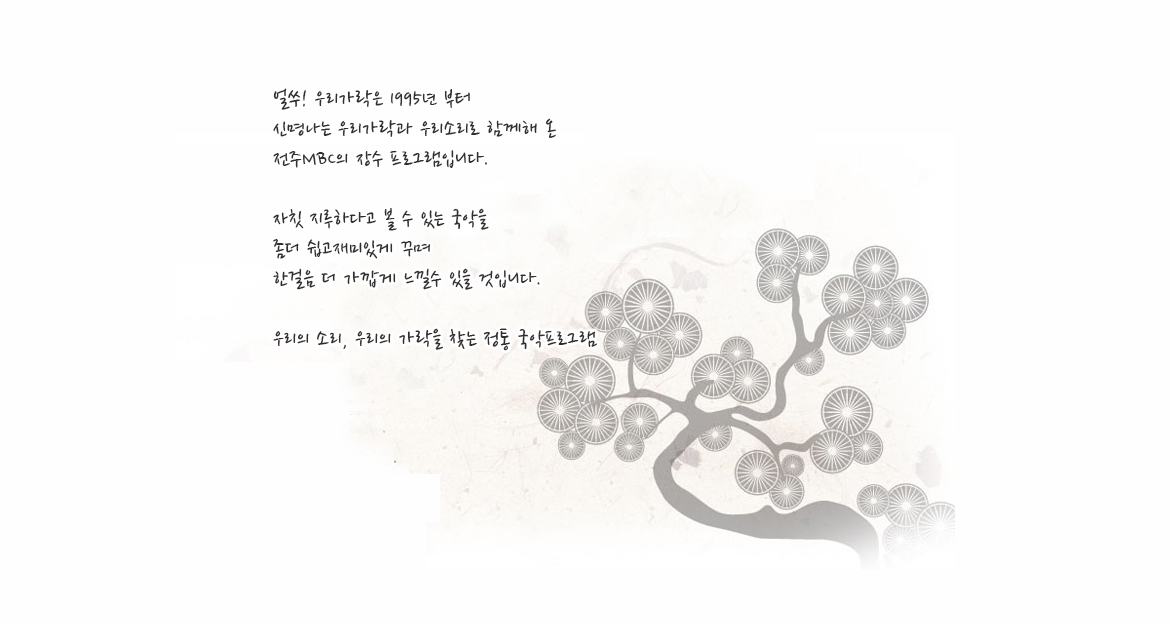 얼쑤! 우리가락은 1995년 부터
신명나는 우리가락과 우리소리로 함께해 온
전주MBC의 장수 프로그램입니다.
자칫 지루하다고 볼 수 있는 국악을
좀더 쉽고재미있게 꾸며
한걸음 더 가깝게 느낄수 있을 것입니다.
우리의 소리, 우리의 가락을 찾는 정통 국악프로그램